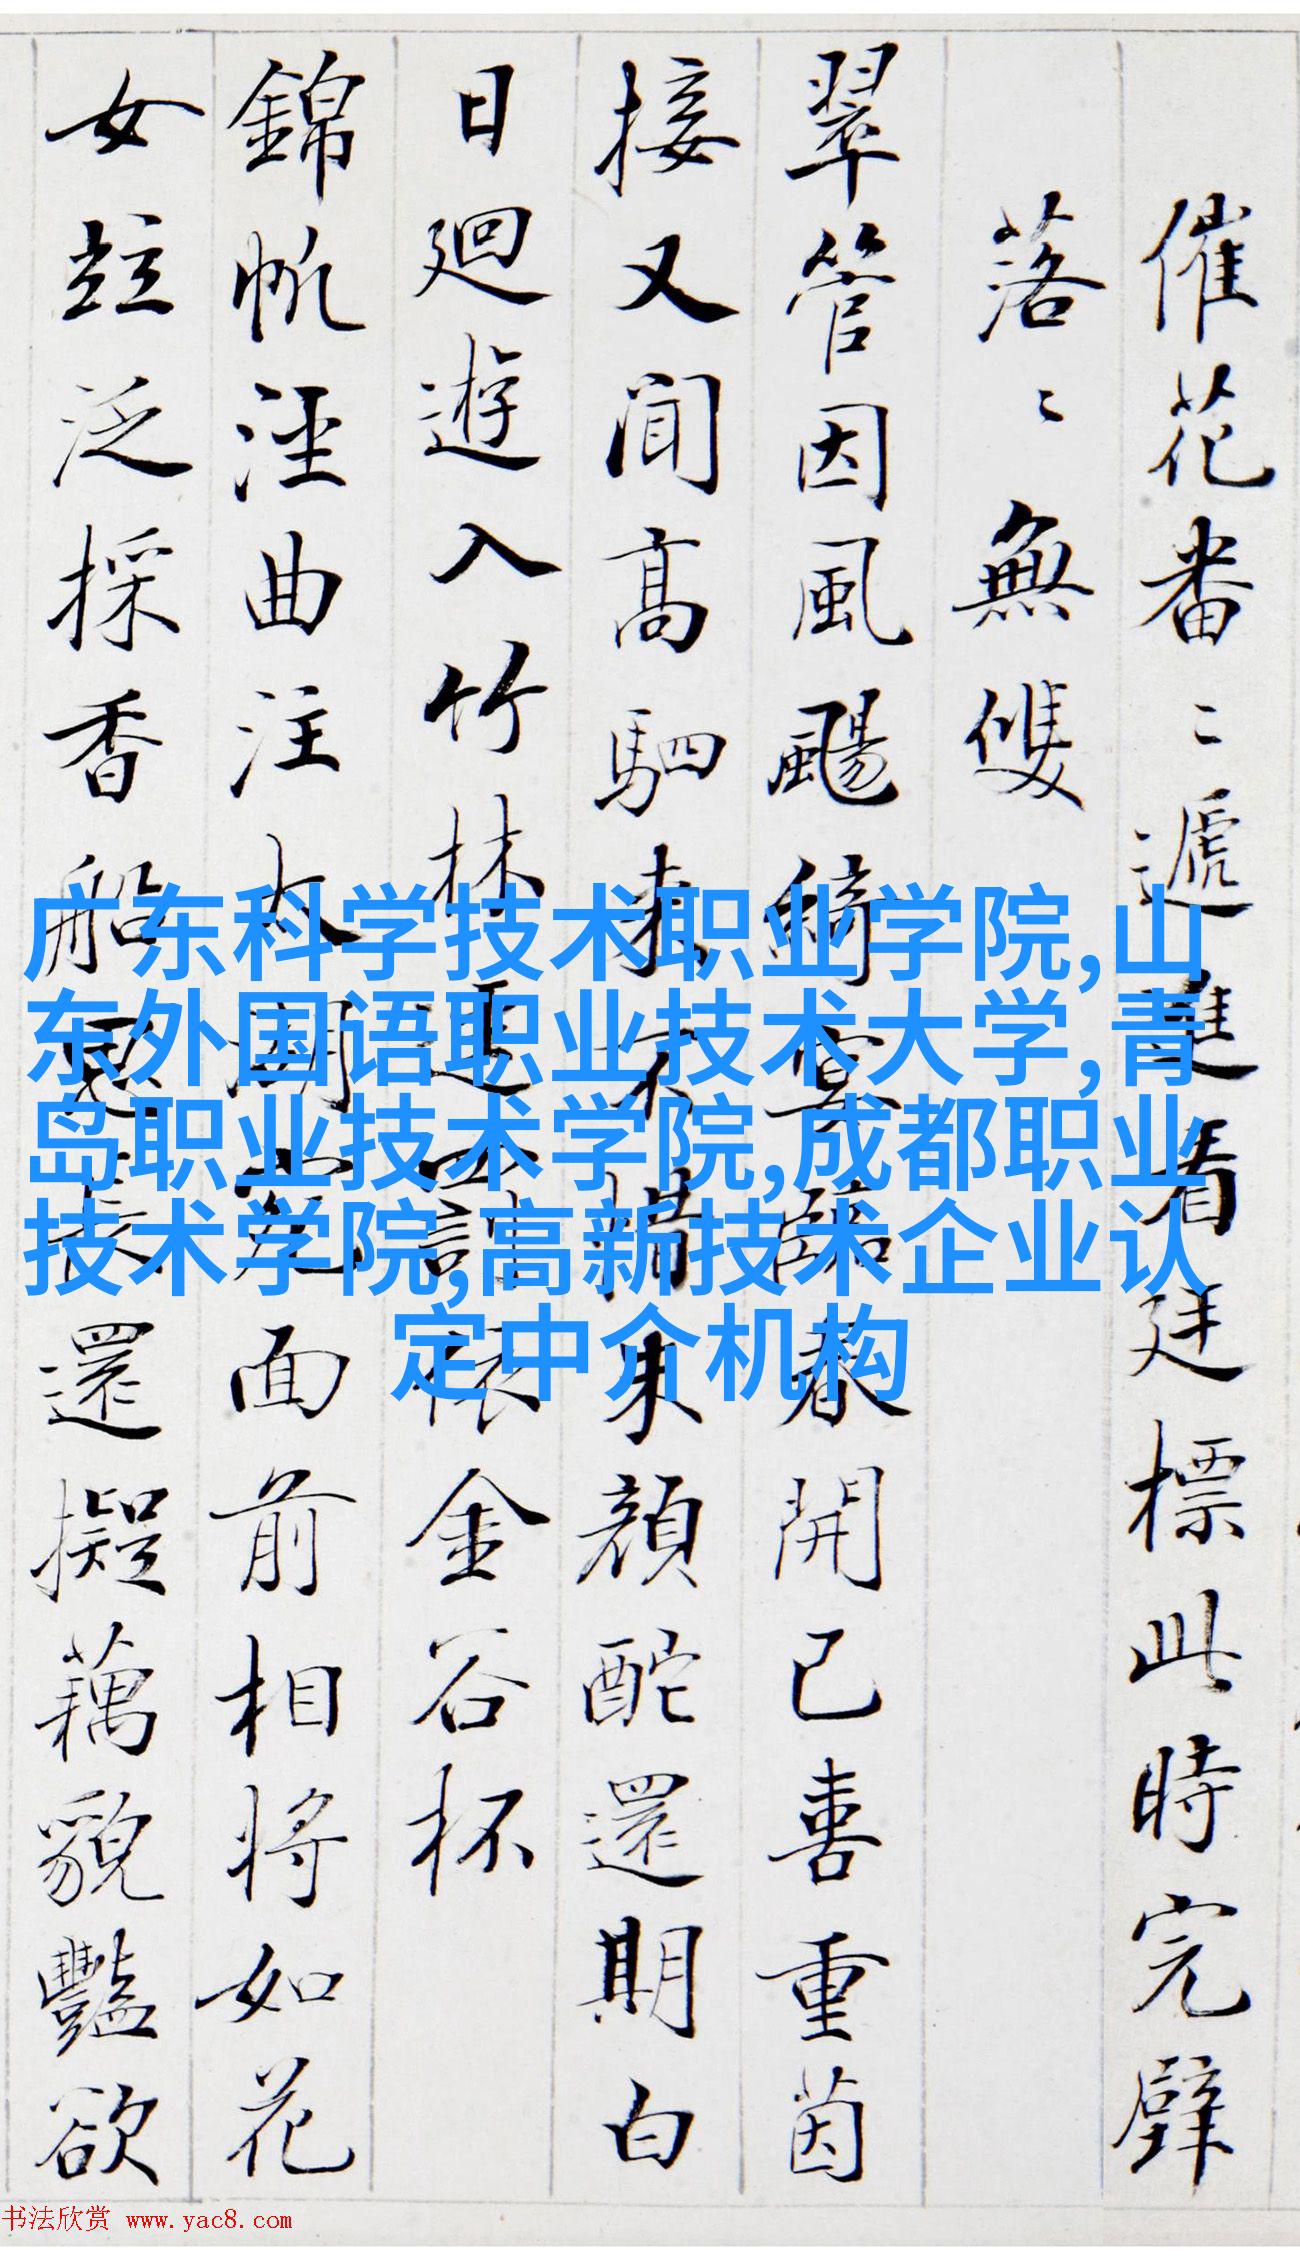 催花番〻遞進看廷標此時完璧
落〻無雙
翠管因風颺 開已喜重茵
接又闻高駟来不惜朱顔酡還期白
日廻遊入竹林 金谷杯
錦帆涇曲注太湖 面前相將如花
女竝泛採香船 還擬藕貌豔欲
广东科学技术职业学院,山
东外国语职业技术大学,青
岛职业技术学院,成都职业
技术学院,高新技术企业认
定中介机构
书法欣赏 www.yac8.com